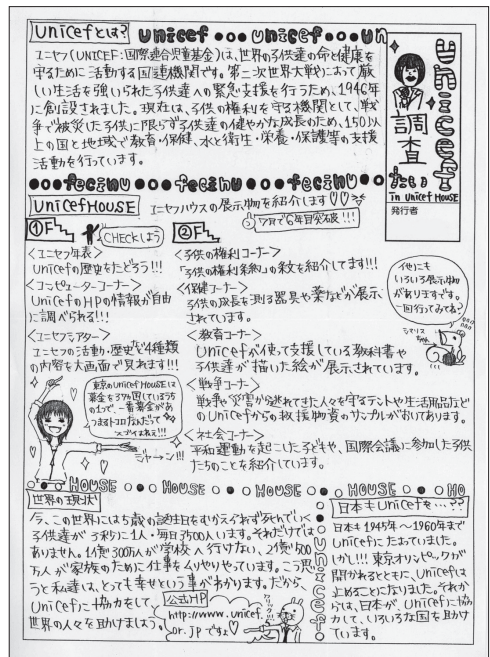 Unicefとは?
unicef ●●● unicef ●●● un
ユニセフ(UNICEF:国際連合児童基金)は、世界の子供達の命と健康を
守るために活動する国連機関です。第二次世界大戦によって厳
しい生活を強いられた子供達への緊急支援を行うため、1946年
に創設されました。現在は、子供の権利を守る機関として、戦
争で被災した子供に限らず子供達の健やかな成長のため、150以
上の国と地域で教育・保健、水と衛生・栄養・保護等の支援
活動を行っています。
unicef
調査
たい
in unicef HOUSE
発行者
UnicefHOUSE
ユニセフハウスの展示物を紹介します♡♡
7月で6年目突破!!!
①F
CHECKしよう
<ユニセフ年表>
Unicefの歴史をたどろう!!!
<コンピューターコーナー>
UnicefのHPの情報が自由
に調べられる!!!
<ユニセフシアター>
ユニセフの活動・歴史など4種類
の内容を大画面で見れます!!!
東京のUnicef HOUSEは
募金を37か国しているうち
の1つで、一番募金があ
つまるトコロなんだって
スゴイよねぇ!!!
ジャーン!!!
②F
<子供の権利コーナー>
「子供の権利条約」の条文を紹介してます!!!
<保健コーナー>
子供の成長を測る器具や薬などが展示
されています。
<教育コーナー>
Unicefが使って支援している教科書や
子供達が描いた絵が展示されています。
<戦争コーナー>
戦争や災害から逃れてきた人々を守るテントや生活用品など
のUnicefからの救援物資のサンプルがおいてあります。
<社会コーナー>
平和運動を起こした子どもや、国際会議に参加した子供
たちのことを紹介しています。
他にも
いろいろ展示物
がありますです。
一回行ってみてね?
シマリス
ちゃん
HOUSE ○●○ HOUSE ○●○ HOUSE ○●○ HOUSE ○●○ HO
世界の現状
今、この世界には5歳の誕生日をむかえられず死んでいく
子供達が3秒に1人・毎日28500人います。それだけでは
ありません。1億300万人が学校へ行けない、2億500
万人が家族のために仕事をムリやりやっています。こう思
うと私達は、とっても幸せという事がわかります。だから、
Unicefに協力をして、
世界の人々を助けましょう。
公式HP
http://www.unicef.
or.jpですよ♡
Unicef
日本もUnicefを…??
日本も1945年~1960年まで
Unicefにたよっていました。
しかし!!! 東京オリンピックが
開かれるとともに、Unicefは
止めることになりました。それか
らは、日本が、Unicefに協
力して、いろいろな国を助け
ています。